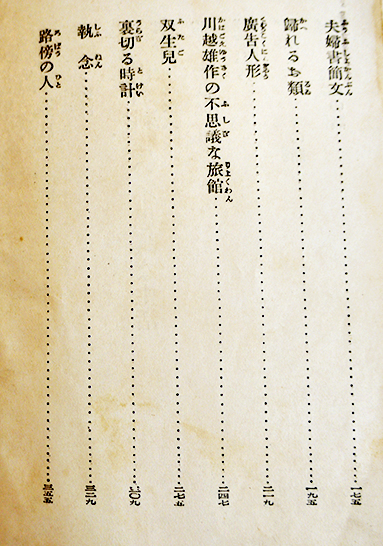 夫婦書簡文 一七五
歸れるお類 一九五
廣告人形 二一九
川越雄作の不思議な旅館 二四七
双生兒 二七五
裏切る時計 三〇九
執念 三二九
路傍の人 三五五